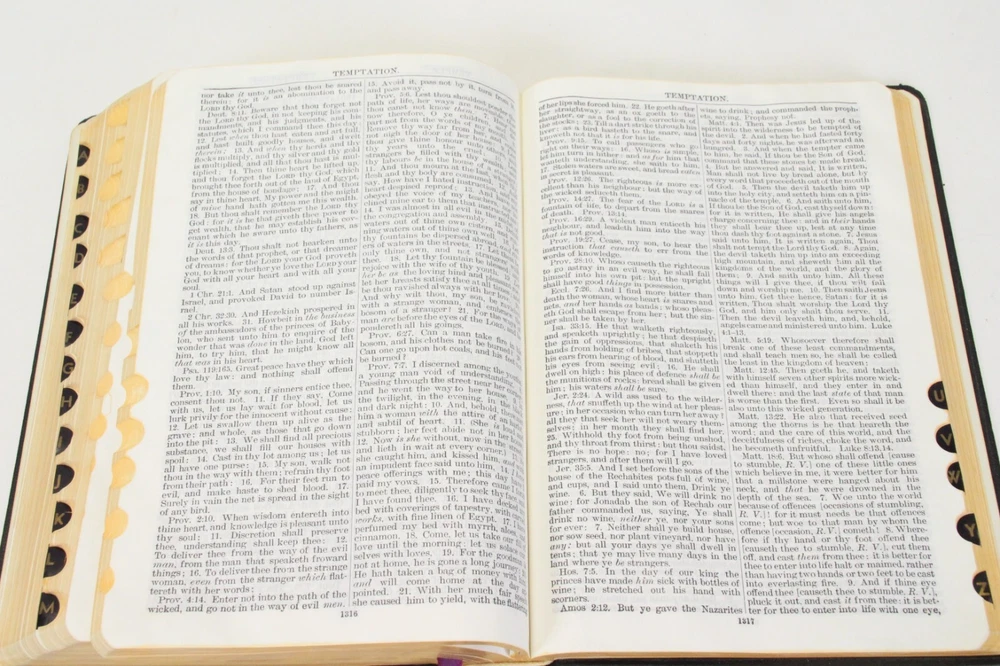 TEMPTATION.
nor take it unto thee, lest thou be snared
therein: for it is an abomination to the
LORD thy God.
Deut. 8:11. Beware that thou forget not
the LORD thy God, in not keeping his com-
mandments, and his judgments, and his
statutes, which I command thee this day:
12. Lest when thou hast eaten and art full,
and hast built goodly houses, and dwelt
therein; 13. And when thy herds and thy
flocks multiply, and thy silver and thy gold
is multiplied, and all that thou hast is mul-
tiplied; 14. Then thine heart be lifted up,
and thou forget the LORD thy God, which
brought thee forth out of the land of Egypt,
from the house of bondage; 17. And thou
say in thine heart, My power and the might
of mine hand hath gotten me this wealth.
18. But thou shalt remember the LORD thy
God: for it is he that giveth thee power to
get wealth, that he may establish his cov-
enant which he sware unto thy fathers, as
it is this day.
Deut. 13:3. Thou shalt not hearken unto
the words of that prophet, or that dreamer
of dreams: for the LORD your God proveth
you, to know whether ye love the LORD your
God with all your heart and with all your
soul.
1 Chr. 21:1. And Satan stood up against
Israel, and provoked David to number Is-
rael.
2 Chr. 32:30. And Hezekiah prospered in
all his works. 31. Howbeit in the business
of the ambassadors of the princes of Baby-
lon, who sent unto him to enquire of the
wonder that was done in the land, God left
him, to try him, that he might know all
that was in his heart.
Psa. 119:165. Great peace have they which
love thy law: and nothing shall offend
them.
Prov. 1:10. My son, if sinners entice thee,
consent thou not. 11. If they say, Come
with us, let us lay wait for blood, let us
lurk privily for the innocent without cause:
12. Let us swallow them up alive as the
grave; and whole, as those that go down
into the pit: 13. We shall find all precious
substance, we shall fill our houses with
spoil: 14. Cast in thy lot among us; let us
all have one purse: 15. My son, walk not
thou in the way with them; refrain thy foot
from their path: 16. For their feet run to
evil, and make haste to shed blood. 17.
Surely in vain the net is spread in the sight
of any bird.
Prov. 2:10. When wisdom entereth into
thine heart, and knowledge is pleasant unto
thy soul; 11. Discretion shall preserve
thee, understanding shall keep thee: 12.
To deliver thee from the way of the evil
man, from the man that speaketh froward
things; 16. To deliver thee from the strange
woman, even from the stranger which flat-
tereth with her words;
Prov. 4:14. Enter not into the path of the
wicked, and go not in the way of evil men.
15. Avoid it, pass not by it, turn from
and pass away.
Prov. 5:6. Lest thou shouldest
path of life, her ways are
thou canst not know them.
now therefore, O ye children,
part not from the words of my
Remove thy way far from
not nigh the door of her
thou give thine honour unto
thy years unto the cruel:
strangers be filled with thy
thy labours be in the house
11. And thou mourn at the last,
flesh and thy body are consumed,
say, How have I hated instruction,
heart despised reproof;
obeyed the voice of my teachers,
clined mine ear to them that
14. I was almost in all evil in the
the congregation and assembly.
waters out of thine own cistern,
ning waters out of thine own well.
thy fountains be dispersed abroad,
ers of waters in the streets. 17. Let
only thine own, and not
thee. 18. Let thy fountain be
rejoice with the wife of thy youth.
her be as the loving hind and
let her breasts satisfy thee at all
be thou ravished always with her
And why wilt thou, my son, be
with a strange woman, and embrace
bosom of a stranger? 21. For the
man are before the eyes of the LORD, and
pondereth all his goings.
Prov. 6:27. Can a man take fire in
bosom, and his clothes not be burned?
Can one go upon hot coals, and his feet
be burned?
Prov. 7:7. I discerned among the
a young man void of understanding,
Passing through the street near her
and he went the way to her house,
the twilight, in the evening, in the
and dark night: 10. And, behold, there
him a woman with the attire of an
and subtil of heart. 11. (She is loud
stubborn; her feet abide not in her
12. Now is she without, now in the
and lieth in wait at every corner.)
she caught him, and kissed him, and
an impudent face said unto him, 14. I
peace offerings with me; this day
paid my vows. 15. Therefore came I
to meet thee, diligently to seek thy face,
I have found thee. 16. I have decked
bed with coverings of tapestry, with
works, with fine linen of Egypt. 17. I
perfumed my bed with myrrh, aloes,
cinnamon. 18. Come, let us take our fill
love until the morning: let us solace
selves with loves. 19. For the goodman
not at home, he is gone a long journey:
He hath taken a bag of money with
and will come home at the day
pointed. 21. With her much fair
she caused him to yield, with the
1316
TEMPTATION.
of her lips she forced him. 22. He goeth after
her straightway, as an ox goeth to the
slaughter, or as a fool to the correction of
the stocks; 23. Till a dart strike through his
liver; as a bird hasteth to the snare, and
knoweth not that it is for his life.
Prov. 9:15. To call passengers who go
right on their ways: 16. Whoso is simple,
let him turn in hither: and as for him that
wanteth understanding, she saith to him,
17. Stolen waters are sweet, and bread eaten
in secret is pleasant.
Prov. 12:26. The righteous is more ex-
cellent than his neighbour: but the way of
the wicked seduceth them.
Prov. 14:27. The fear of the LORD is a
fountain of life, to depart from the snares
of death. Prov. 13:14.
Prov. 16:29. A violent man enticeth his
neighbour, and leadeth him into the way
that is not good.
Prov. 19:27. Cease, my son, to hear the
instruction that causeth to err from the
words of knowledge.
Prov. 28:10. Whoso causeth the righteous
to go astray in an evil way, he shall fall
himself into his own pit: but the upright
shall have good things in possession.
Eccl. 7:26. And I find more bitter than
death the woman, whose heart is snares and
nets, and her hands as bands: whoso pleas-
eth God shall escape from her; but the sin-
ner shall be taken by her.
Isa. 33:15. He that walketh righteously,
and speaketh uprightly; he that despiseth
the gain of oppressions, that shaketh his
hands from holding of bribes, that stoppeth
his ears from hearing of blood, and shutteth
his eyes from seeing evil; 16. He shall
dwell on high: his place of defence shall be
the munitions of rocks: bread shall be given
him; his waters shall be sure.
Jer. 2:24. A wild ass used to the wilder-
ness, that snuffeth up the wind at her pleas-
ure; in her occasion who can turn her away?
all they that seek her will not weary them-
selves; in her month they shall find her.
25. Withhold thy foot from being unshod,
and thy throat from thirst: but thou saidst,
There is no hope: no; for I have loved
strangers, and after them will I go.
Jer. 35:5. And I set before the sons of the
house of the Rechabites pots full of wine,
and cups, and I said unto them, Drink ye
wine. 6. But they said, We will drink no
wine: for Jonadab the son of Rechab our
father commanded us, saying, Ye shall
drink no wine, neither ye, nor your sons
for ever: 7. Neither shall ye build house,
nor sow seed, nor plant vineyard, nor have
any: but all your days ye shall dwell in
tents; that ye may live many days in the
land where ye be strangers.
Hos. 7:5. In the day of our king the
princes have made him sick with bottles of
wine; he stretched out his hand with
scorners.
Amos 2:12. But ye gave the Nazarites
wine to drink; and commanded the proph-
ets, saying, Prophesy not.
Matt. 4:1. Then was Jesus led up of the
spirit into the wilderness to be tempted of
the devil. 2. And when he had fasted forty
days and forty nights, he was afterward an
hungred. 3. And when the tempter came
to him, he said, If thou be the Son of God,
command that these stones be made bread.
4. But he answered and said, It is written,
Man shall not live by bread alone, but by
every word that proceedeth out of the mouth
of God. 5. Then the devil taketh him up
into the holy city, and setteth him on a pin-
nacle of the temple, 6. And saith unto him,
If thou be the Son of God, cast thyself down:
for it is written, He shall give his angels
charge concerning thee: and in their hands
they shall bear thee up, lest at any time
thou dash thy foot against a stone. 7. Jesus
said unto him, It is written again, Thou
shalt not tempt the Lord thy God. 8. Again,
the devil taketh him up into an exceeding
high mountain, and sheweth him all the
kingdoms of the world, and the glory of
them; 9. And saith unto him, All these
things will I give thee, if thou wilt fall
down and worship me. 10. Then saith Jesus
unto him, Get thee hence, Satan: for it is
written, Thou shalt worship the Lord thy
God, and him only shalt thou serve. 11.
Then the devil leaveth him, and, behold,
angels came and ministered unto him. Luke
4:1-13.
Matt. 5:19. Whosoever therefore shall
break one of these least commandments,
and shall teach men so, he shall be called
the least in the kingdom of heaven:
Matt. 12:45. Then goeth he, and taketh
with himself seven other spirits more wick-
ed than himself, and they enter in and
dwell there: and the last state of that man
is worse than the first. Even so shall it be
also unto this wicked generation.
Matt. 13:22. He also that received seed
among the thorns is he that heareth the
word; and the care of this world, and the
deceitfulness of riches, choke the word, and
he becometh unfruitful. Luke 8:13,14.
Matt. 18:6. But whoso shall offend [cause
to stumble, R. V.] one of these little ones
which believe in me, it were better for him
that a millstone were hanged about his
neck, and that he were drowned in the
depth of the sea. 7. Woe unto the world
because of offences [occasions of stumbling,
R. V.]! for it must needs be that offences
come; but woe to that man by whom the
offence [occasion, R. V.] cometh! 8. Where-
fore if thy hand or thy foot offend thee
[causeth thee to stumble, R. V.], cut them
off, and cast them from thee: it is better for
thee to enter into life halt or maimed, rather
than having two hands or two feet to be cast
into everlasting fire. 9. And if thine eye
offend thee [causeth thee to stumble, R. V.],
pluck it out, and cast it from thee: it is bet-
ter for thee to enter into life with one eye,
1317
A
B
C
D
E
F
G
H
I
J
K
L
M
U
V
W
Y
Z